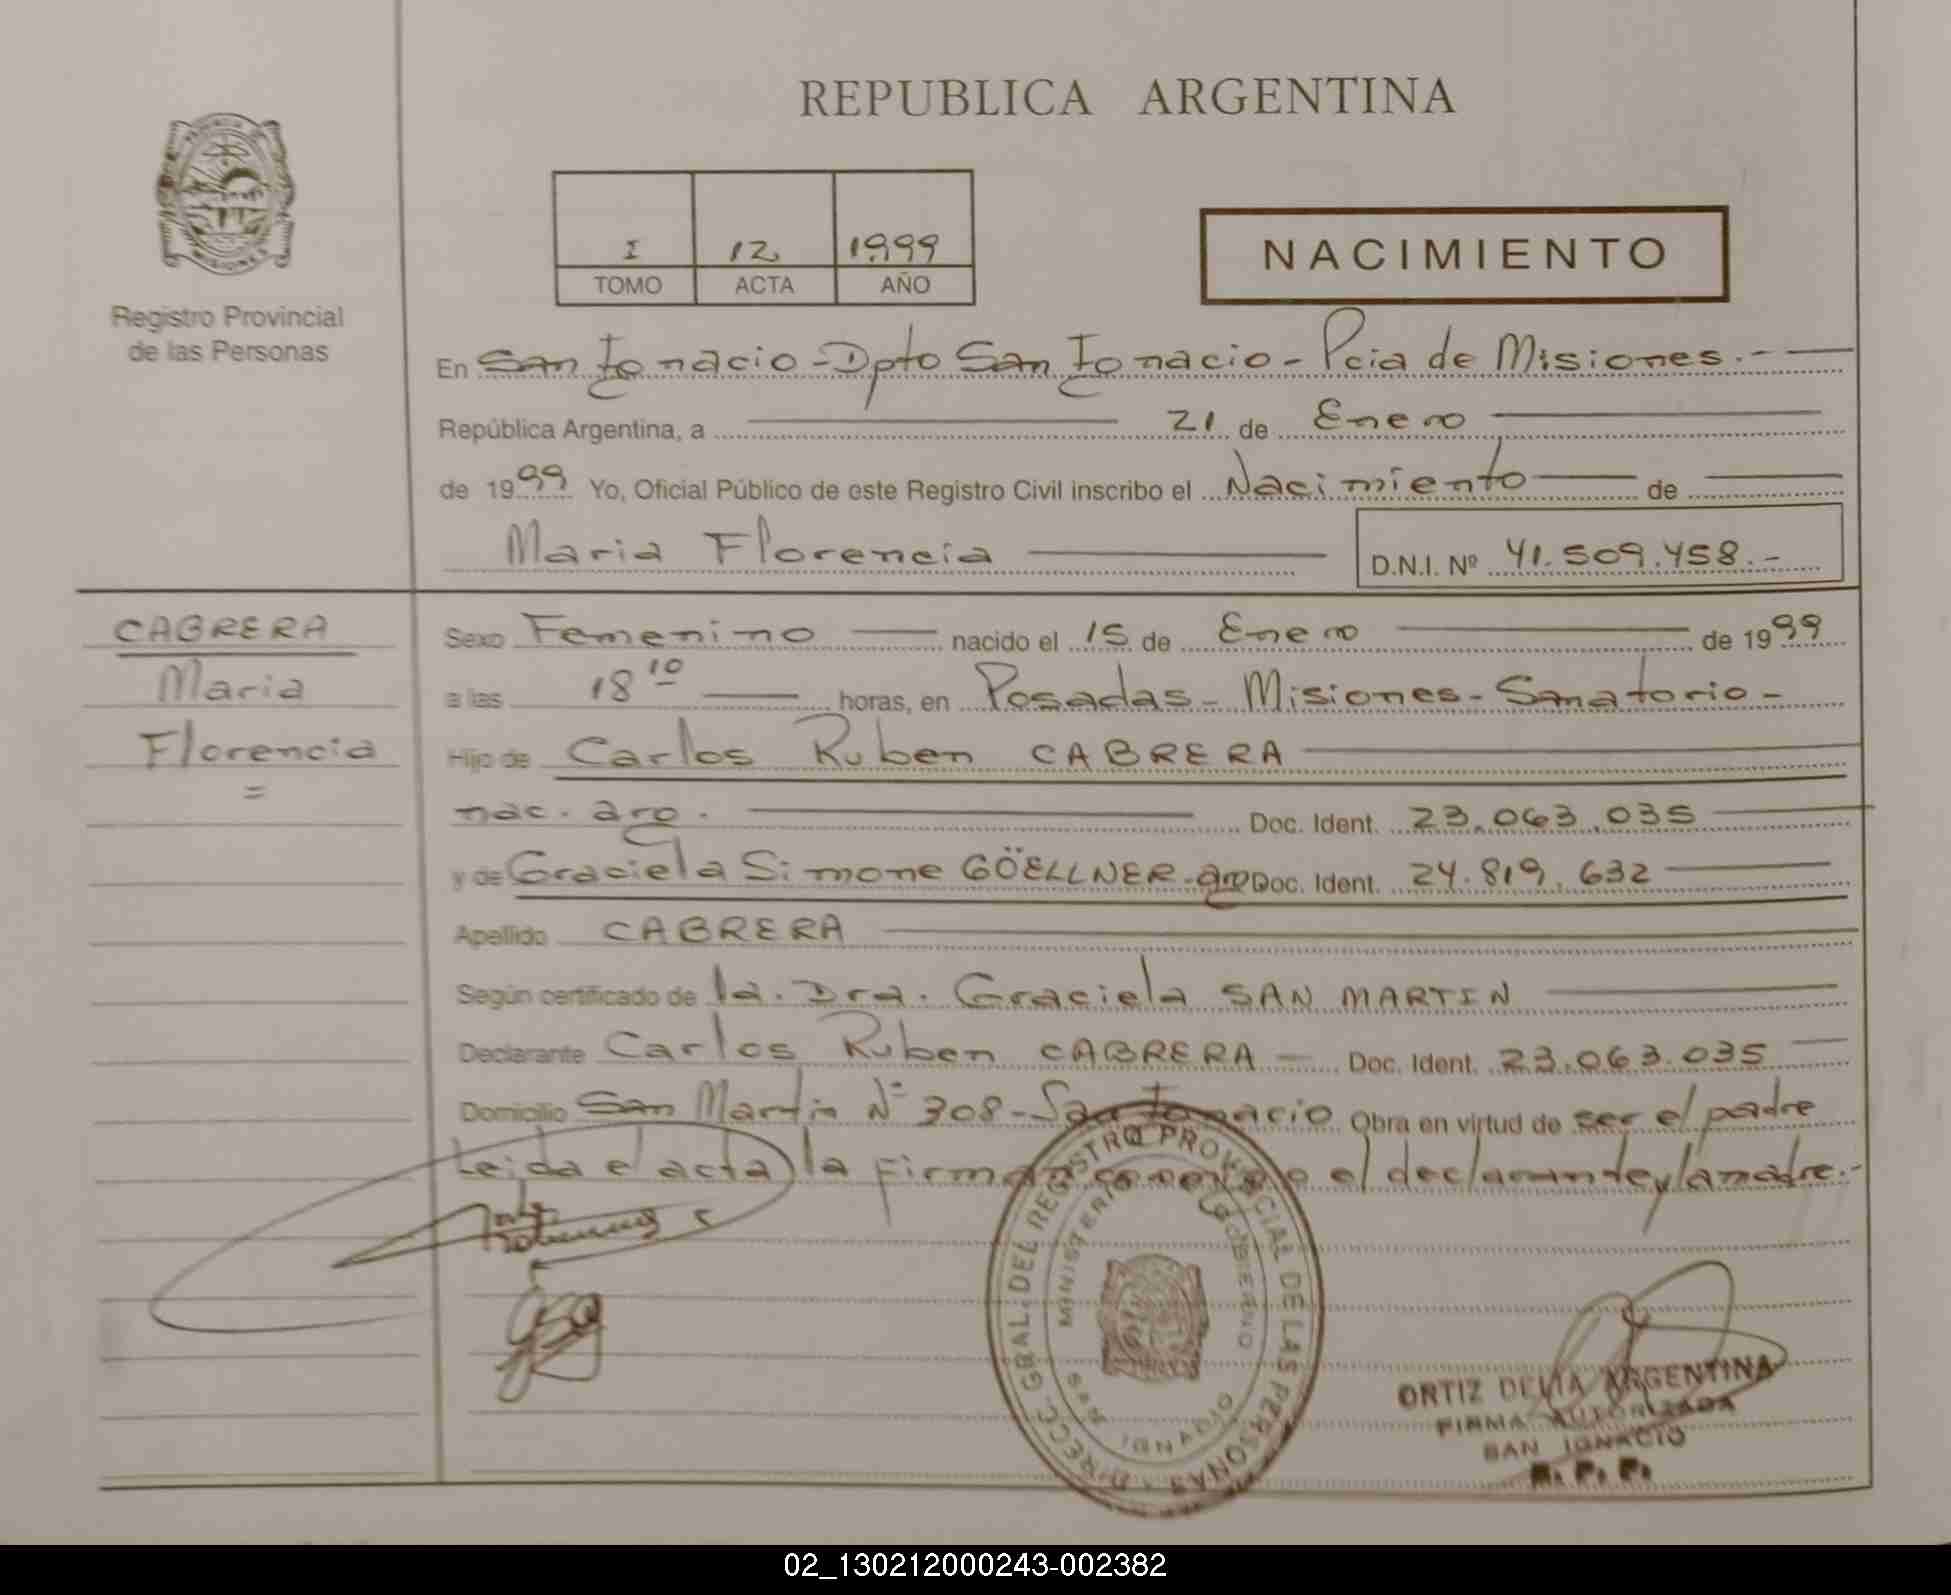 REPUBLICA ARGENTINA
PROVINCIA DE
MISIONES
Registro Provincial
de las Personas
I 12 1999
TOMO ACTA AÑO
NACIMIENTO
En San Ignacio - Dpto San Ignacio - Pcia de Misiones.-
República Argentina, a 21 de Enero
de 1999 Yo, Oficial Público de este Registro Civil inscribo el Nacimiento de
Maria Florencia D.N.I. Nº 41.509.458.-
CABRERA
Maria
Florencia
=
Sexo Femenino nacido el 15 de Enero de 1999
a las 18 10 horas, en Posadas - Misiones - Sanatorio -
Hijo de Carlos Ruben CABRERA
nac. arg. Doc. Ident. 23.063.035
y de Graciela Simone GÖELLNER - arg Doc. Ident. 24.819.632
Apellido CABRERA
Según certificado de la. Dra. Graciela SAN MARTIN
Declarante Carlos Ruben CABRERA - Doc. Ident. 23.063.035
Domicilio San Martin Nº 308 - San Ignacio Obra en virtud de ser el padre
Leida el acta la firman conmigo el declarante y la madre.-
DIRECC. GRAL. DEL REGISTRO PROVINCIAL DE LAS PERSONAS
MINISTERIO GOBIERNO
SAN IGNACIO
ORTIZ DELIA ARGENTINA
FIRMA AUTORIZADA
SAN IGNACIO
R. P. P.
02_130212000243-002382